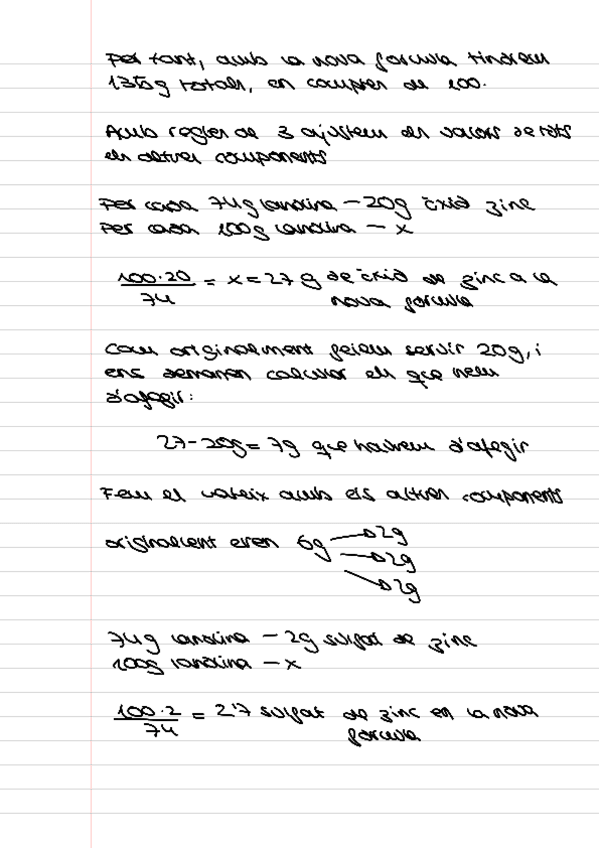 Per tant, amb la nova formula tindrem
135g totals, en comptes de 100.
Amb regles de 3 ajustem els valors de tots
els altres components
Per cada 74g lanolina – 20g òxid zinc
Per cada 100g lanolina – x
100·20 / 74 = x = 27 g de òxid de zinc a la
nova formula
Com originalment feiem servir 20g, i
ens demanen calcular els que hem
d'afegir:
27-20g = 7g que haurem d'afegir
Fem el mateix amb els altres components
originalment eren 6g → 2g
→ 2g
→ 2g
74g lanolina – 2g sulfat de zinc
100g lanolina – x
100·2 / 74 = 2'7 sulfat de zinc en la nova
formula